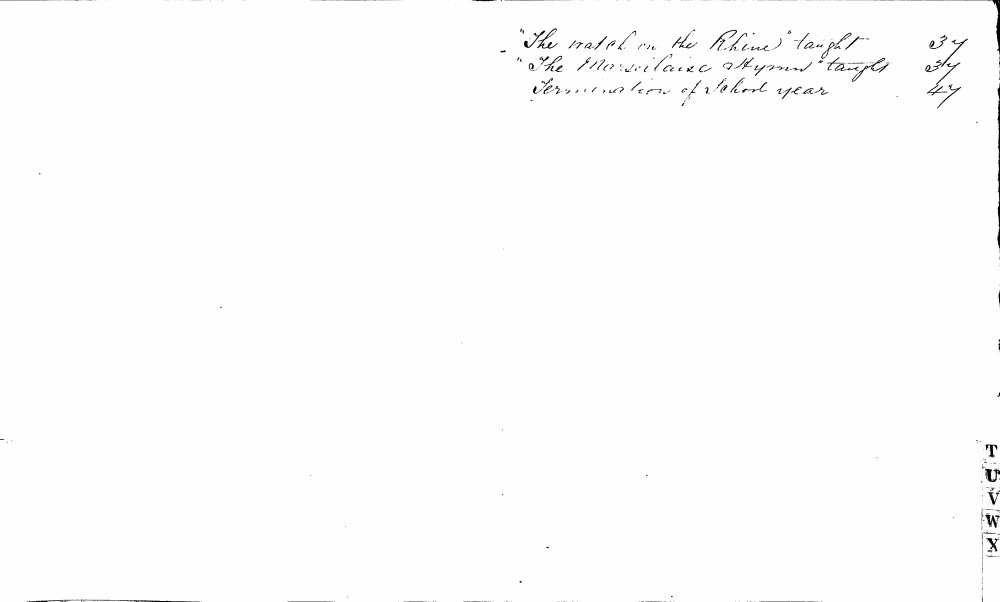 "The watch on the Rhine" taught 37
"The Marseilaise Hymn" taught 37
Termination of School year 47
T
U
V
W
X